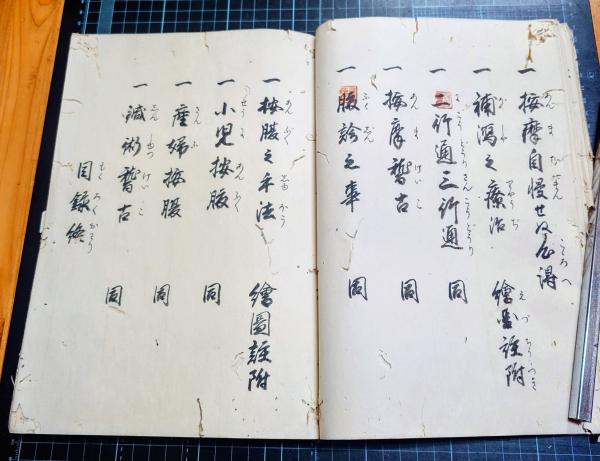 一 按摩自慢せぬ心得
一 補瀉之療治 繪圖註附
一 二行通三行通 同
一 按摩稽古 同
一 腹診之事 同
一 按腹之手法 繪圖註附
一 小児按腹 同
一 産婦按腹 同
一 鍼術稽古 同
目録終